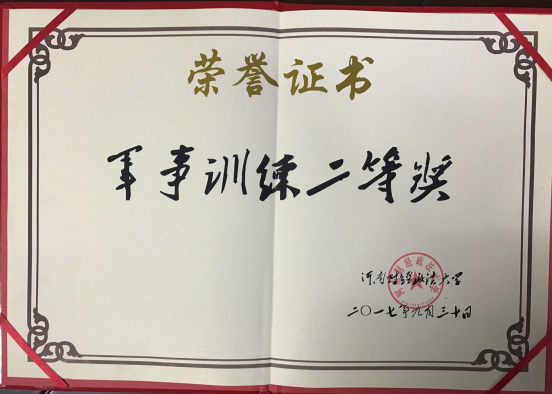 荣誉证书
军事训练二等奖
河南财经政法大学
二〇一七年九月三十日